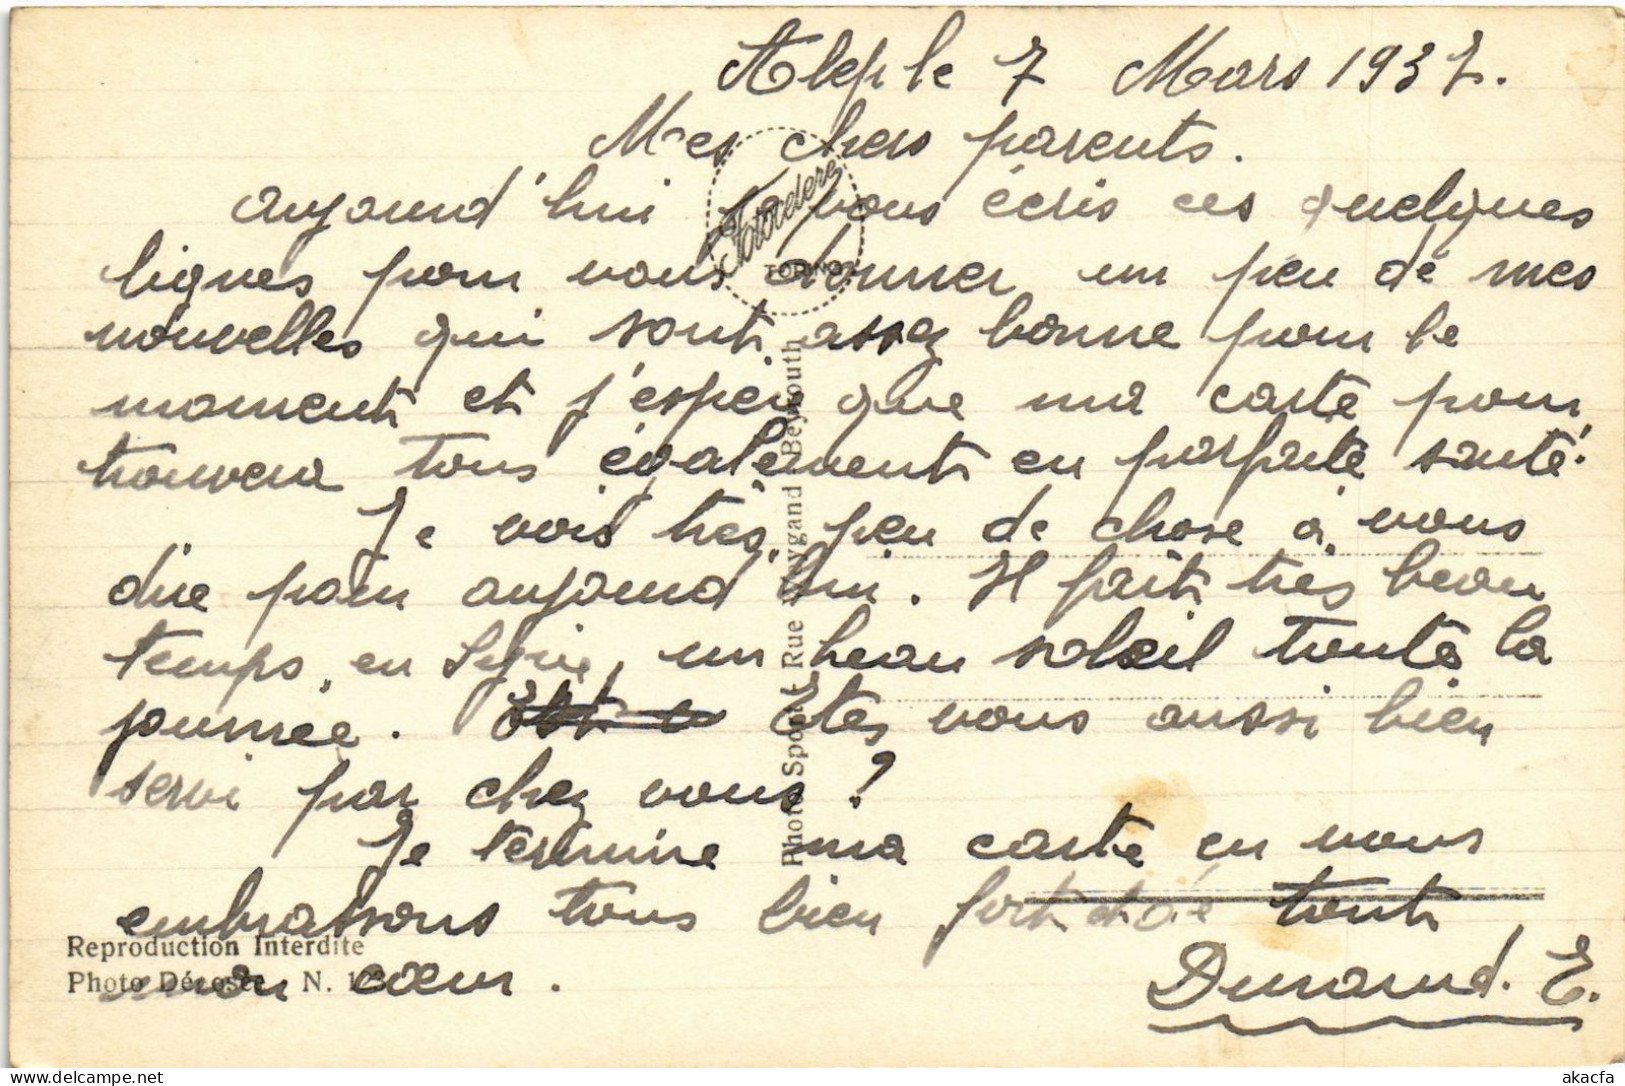 Alep le 7 Mars 1937.
Mes chers parents.
aujourd'hui vous écris ces quelques
lignes pour vous donner un peu de mes
nouvelles qui sont assez bonne pour le
moment et j'espèr que ma carte pour
trouvera tous également en parfaite santé.
Je vois très peu de chose à vous
dire pour aujourd'hui. Il fait très beau
temps en Syrie, un beau soleil toute la
journée. êtes vous aussi bien
servi par chez vous?
Je termine ma carte en vous
embrassons tous bien fort et de tout
mon cœur.
Durand. E.
Fotocelere
TORINO
Photo Sport Rue Weygand Beyrouth
Reproduction Interdite
Photo Déposée N.
akacfa